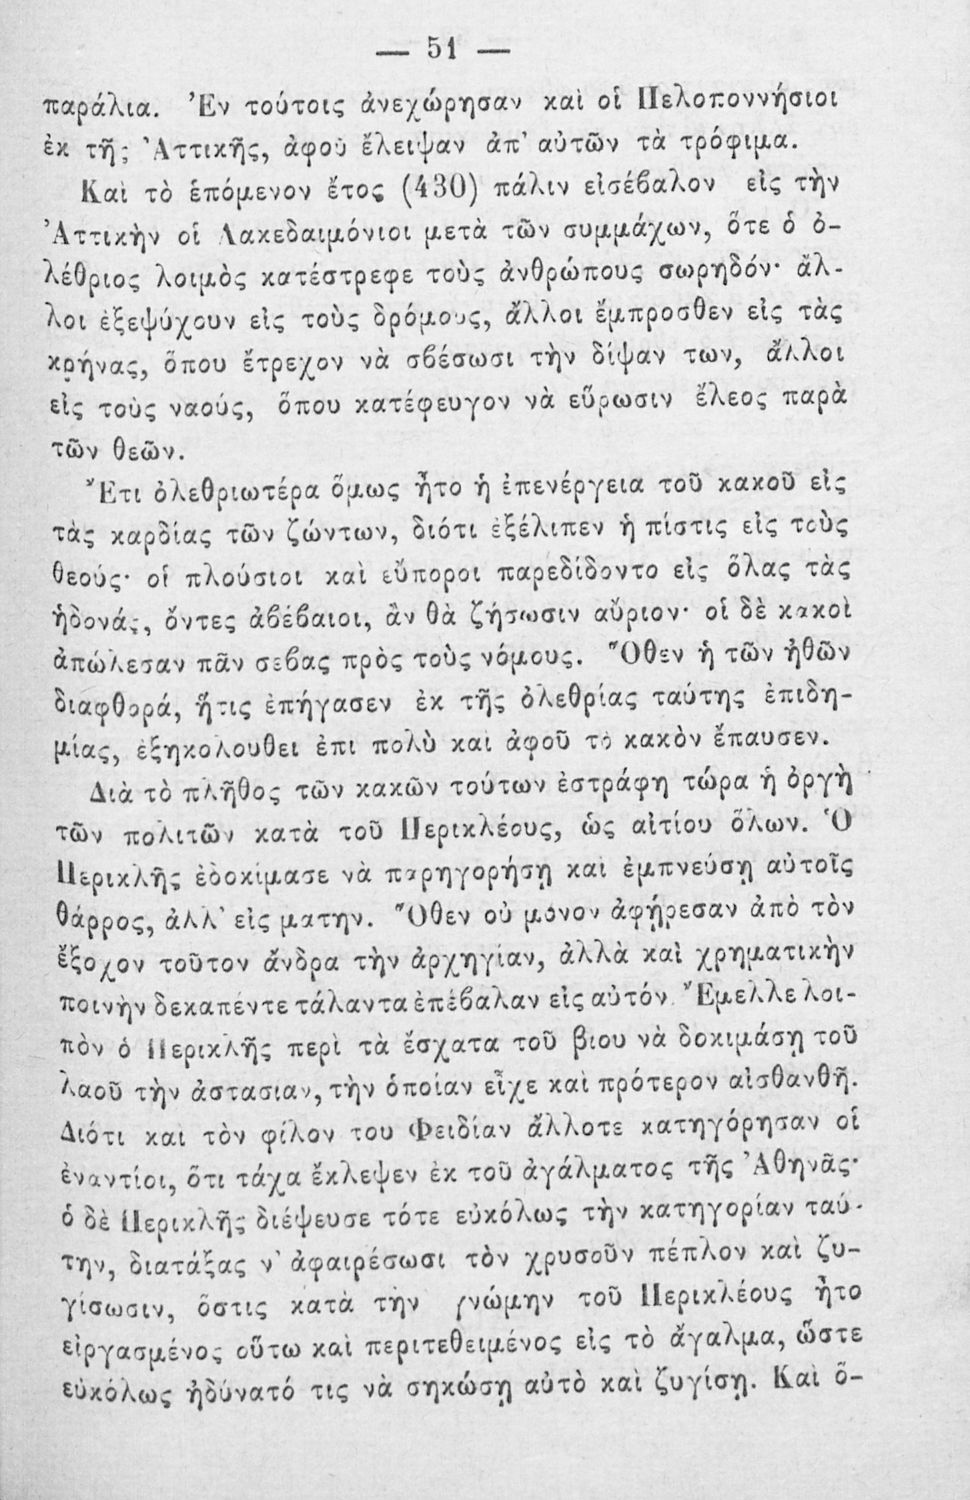 — 51 —
παράλια. Ἐν τούτοις ἀνεχώρησαν καὶ οἱ Πελοποννήσιοι
ἐκ τῆς Ἀττικῆς, ἀφοῦ ἔλειψαν ἀπ' αὐτῶν τὰ τρόφιμα.
Καὶ τὸ ἑπόμενον ἔτος (430) πάλιν εἰσέβαλον εἰς τὴν
Ἀττικὴν οἱ Λακεδαιμόνιοι μετὰ τῶν συμμάχων, ὅτε ὁ ὀ-
λέθριος λοιμὸς κατέστρεφε τοὺς ἀνθρώπους σωρηδόν· ἄλ-
λοι ἐξεψύχουν εἰς τοὺς δρόμους, ἄλλοι ἔμπροσθεν εἰς τὰς
κρήνας, ὅπου ἔτρεχον νὰ σβέσωσι τὴν δίψαν των, ἄλλοι
εἰς τοὺς ναούς, ὅπου κατέφευγον νὰ εὕρωσιν ἔλεος παρὰ
τῶν θεῶν.
Ἔτι ὀλεθριωτέρα ὅμως ἦτο ἡ ἐπενέργεια τοῦ κακοῦ εἰς
τὰς καρδίας τῶν ζώντων, διότι ἐξέλιπεν ἡ πίστις εἰς τοὺς
θεούς· οἱ πλούσιοι καὶ εὔποροι παρεδίδοντο εἰς ὅλας τὰς
ἡδονάς, ὄντες ἀβέβαιοι, ἂν θὰ ζήσωσιν αὔριον· οἱ δὲ κακοὶ
ἀπώλεσαν πᾶν σέβας πρὸς τοὺς νόμους. Ὅθεν ἡ τῶν ἠθῶν
διαφθορά, ἥτις ἐπήγασεν ἐκ τῆς ὀλεθρίας ταύτης ἐπιδη-
μίας, ἐξηκολούθει ἐπὶ πολὺ καὶ ἀφοῦ τὸ κακὸν ἔπαυσεν.
Διὰ τὸ πλῆθος τῶν κακῶν τούτων ἐστράφη τώρα ἡ ὀργὴ
τῶν πολιτῶν κατὰ τοῦ Περικλέους, ὡς αἰτίου ὅλων. Ὁ
Περικλῆς ἐδοκίμασε νὰ παρηγορήσῃ καὶ ἐμπνεύσῃ αὐτοῖς
θάρρος, ἀλλ' εἰς μάτην. Ὅθεν οὐ μόνον ἀφῄρεσαν ἀπὸ τὸν
ἔξοχον τοῦτον ἄνδρα τὴν ἀρχηγίαν, ἀλλὰ καὶ χρηματικὴν
ποινὴν δεκαπέντε τάλαντα ἐπέβαλαν εἰς αὐτόν. Ἔμελλε λοι-
πὸν ὁ Περικλῆς περὶ τὰ ἔσχατα τοῦ βίου νὰ δοκιμάσῃ τοῦ
λαοῦ τὴν ἀστασίαν, τὴν ὁποίαν εἶχε καὶ πρότερον αἰσθανθῆ.
Διότι καὶ τὸν φίλον του Φειδίαν ἄλλοτε κατηγόρησαν οἱ
ἐναντίοι, ὅτι τάχα ἔκλεψεν ἐκ τοῦ ἀγάλματος τῆς Ἀθηνᾶς·
ὁ δὲ Περικλῆς διέψευσε τότε εὐκόλως τὴν κατηγορίαν ταύ-
την, διατάξας ν' ἀφαιρέσωσι τὸν χρυσοῦν πέπλον καὶ ζυ-
γίσωσιν, ὅστις κατὰ τὴν γνώμην τοῦ Περικλέους ἦτο
εἰργασμένος οὕτω καὶ περιτεθειμένος εἰς τὸ ἄγαλμα, ὥστε
εὐκόλως ἠδύνατό τις νὰ σηκώσῃ αὐτὸ καὶ ζυγίσῃ. Καὶ ὅ-